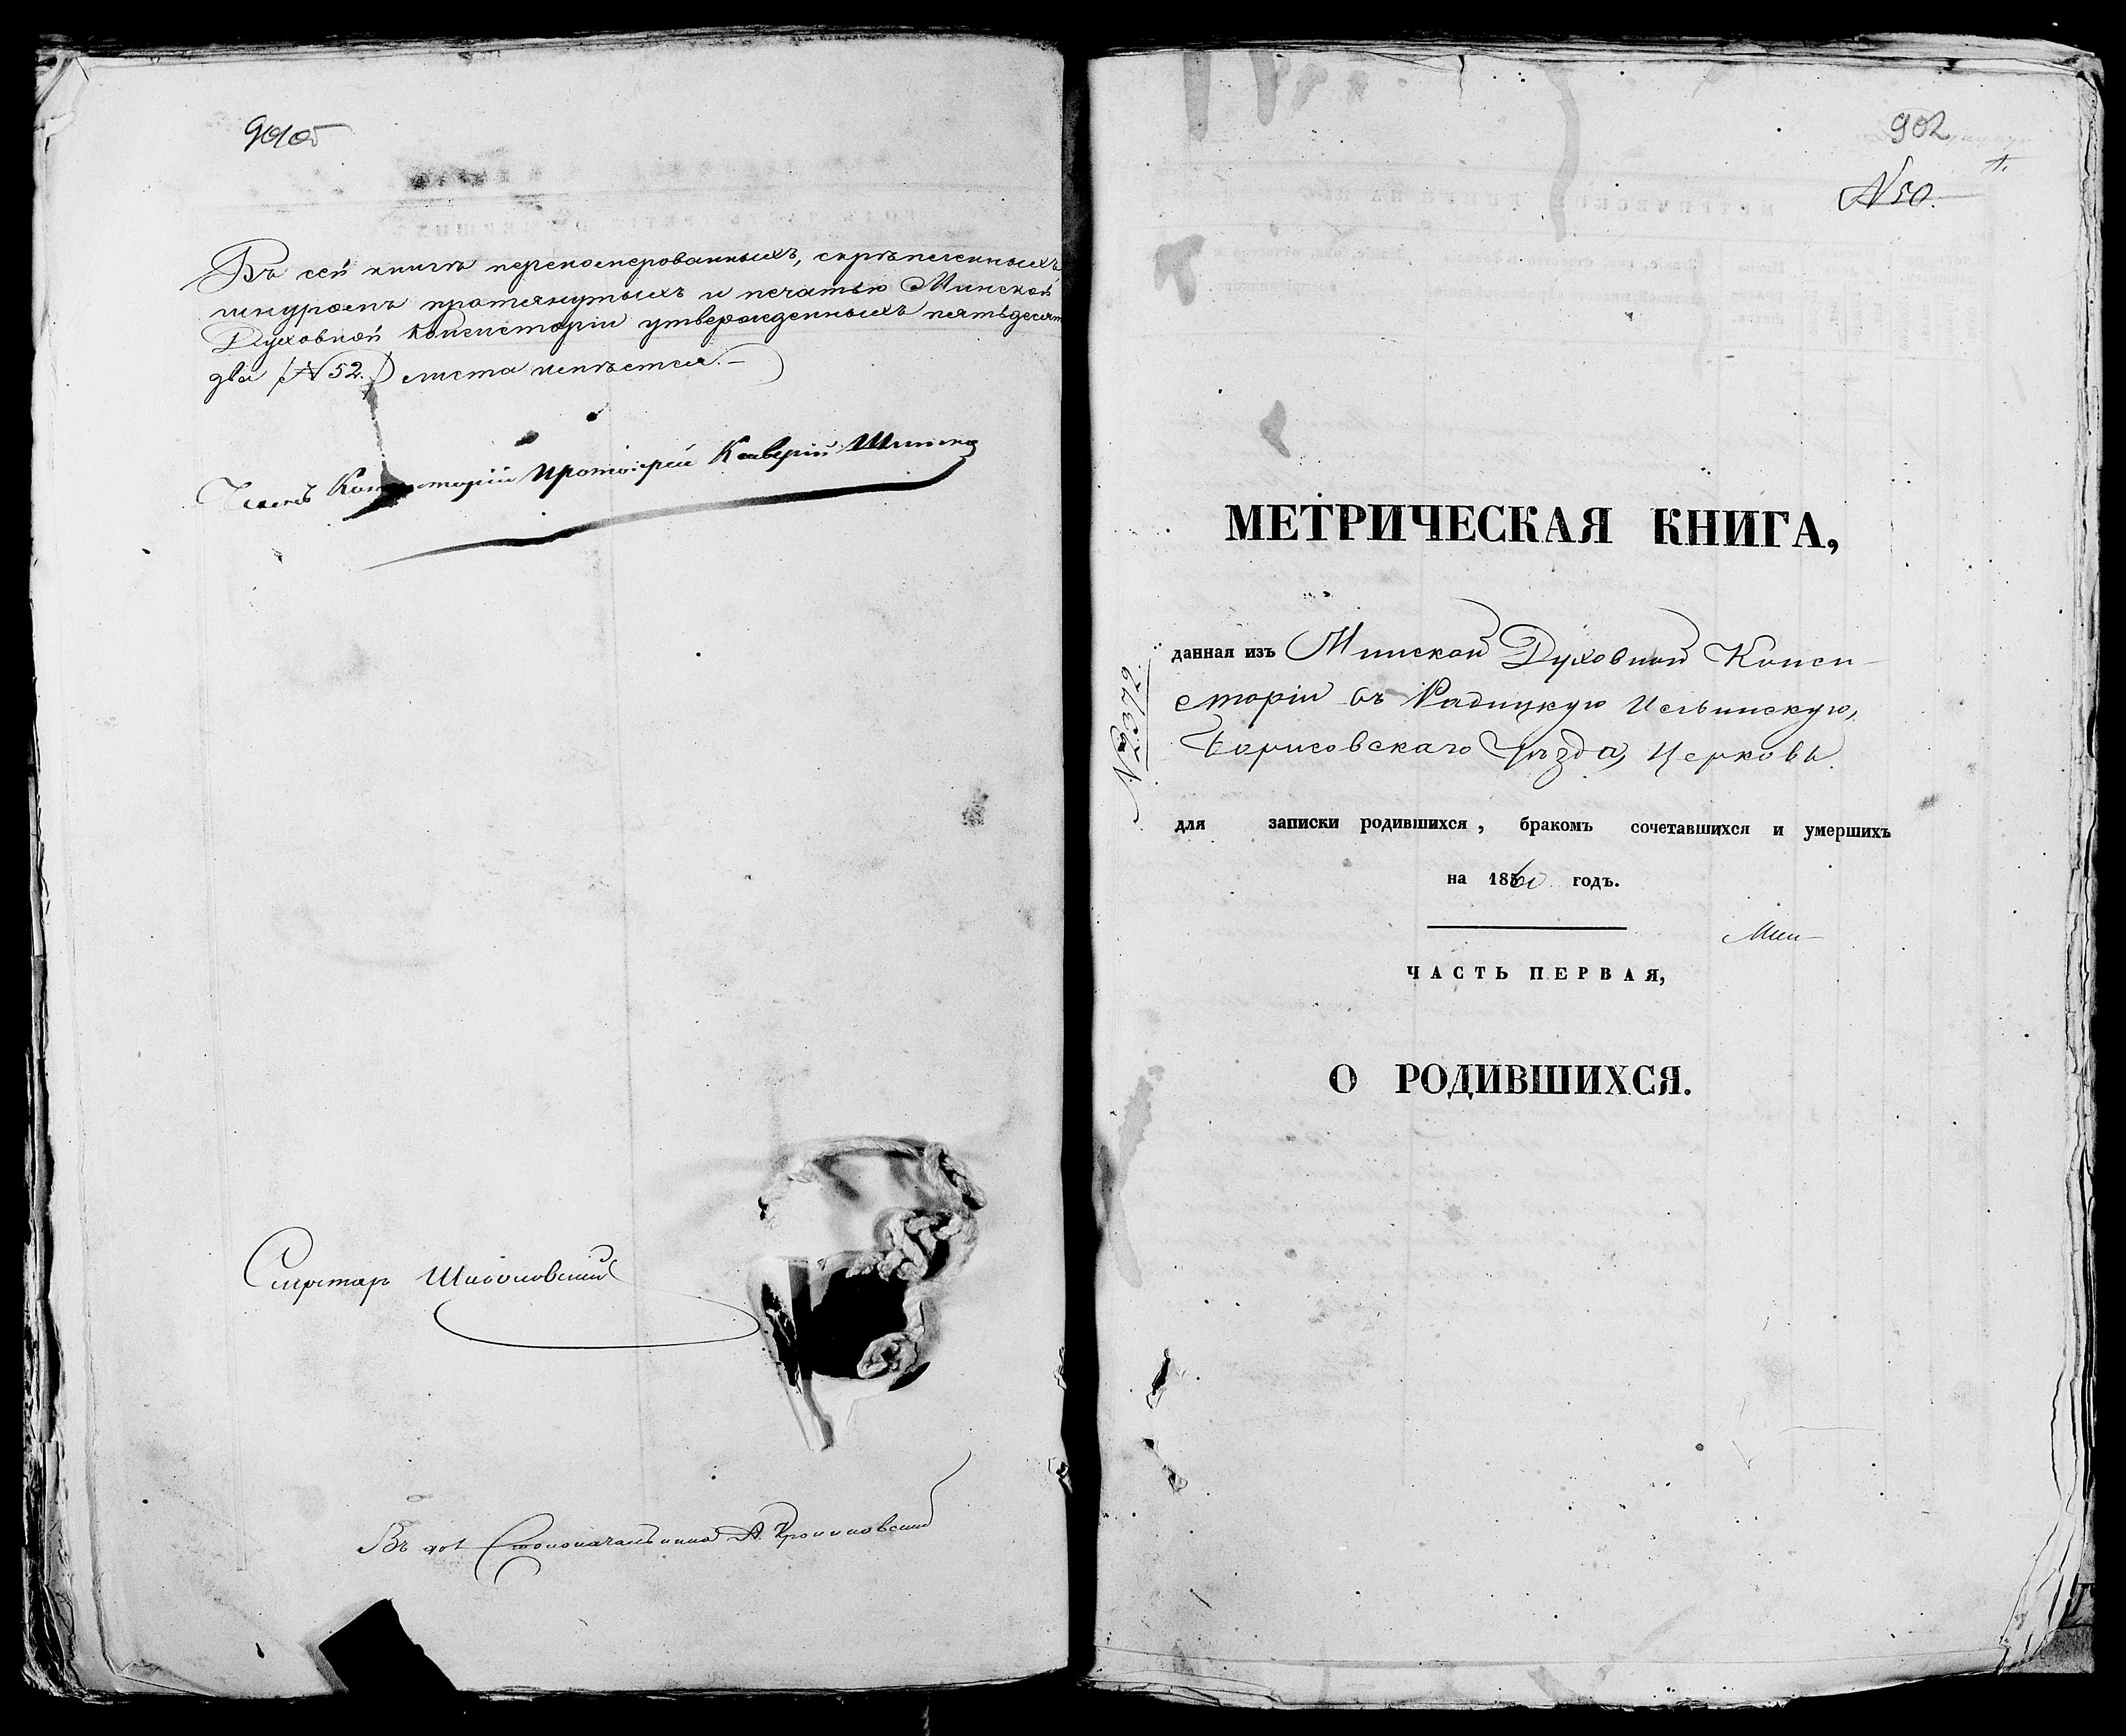 Въ сей книгѣ перенумерованныхъ, скрѣпленныхъ,
шнуромъ протянутыхъ и печатью Минской
Духовной Консисторіи утвержденныхъ пятьдесят
два (№ 52.) листа имѣется.—
Членъ Консисторіи Протоіерей
Секретарь
Въ дол. Столоначальника А.
902
1.
№ 50.
МЕТРИЧЕСКАЯ КНИГА,
данная изъ Минской Духовной Конси-
сторіи въ Радицкую Ильинскую,
Борисовскаго Уѣзда, Церковь.
для записки родившихся, бракомъ сочетавшихся и умершихъ
на 1860 годъ.
Мин-
ЧАСТЬ ПЕРВАЯ,
О РОДИВШИХСЯ.